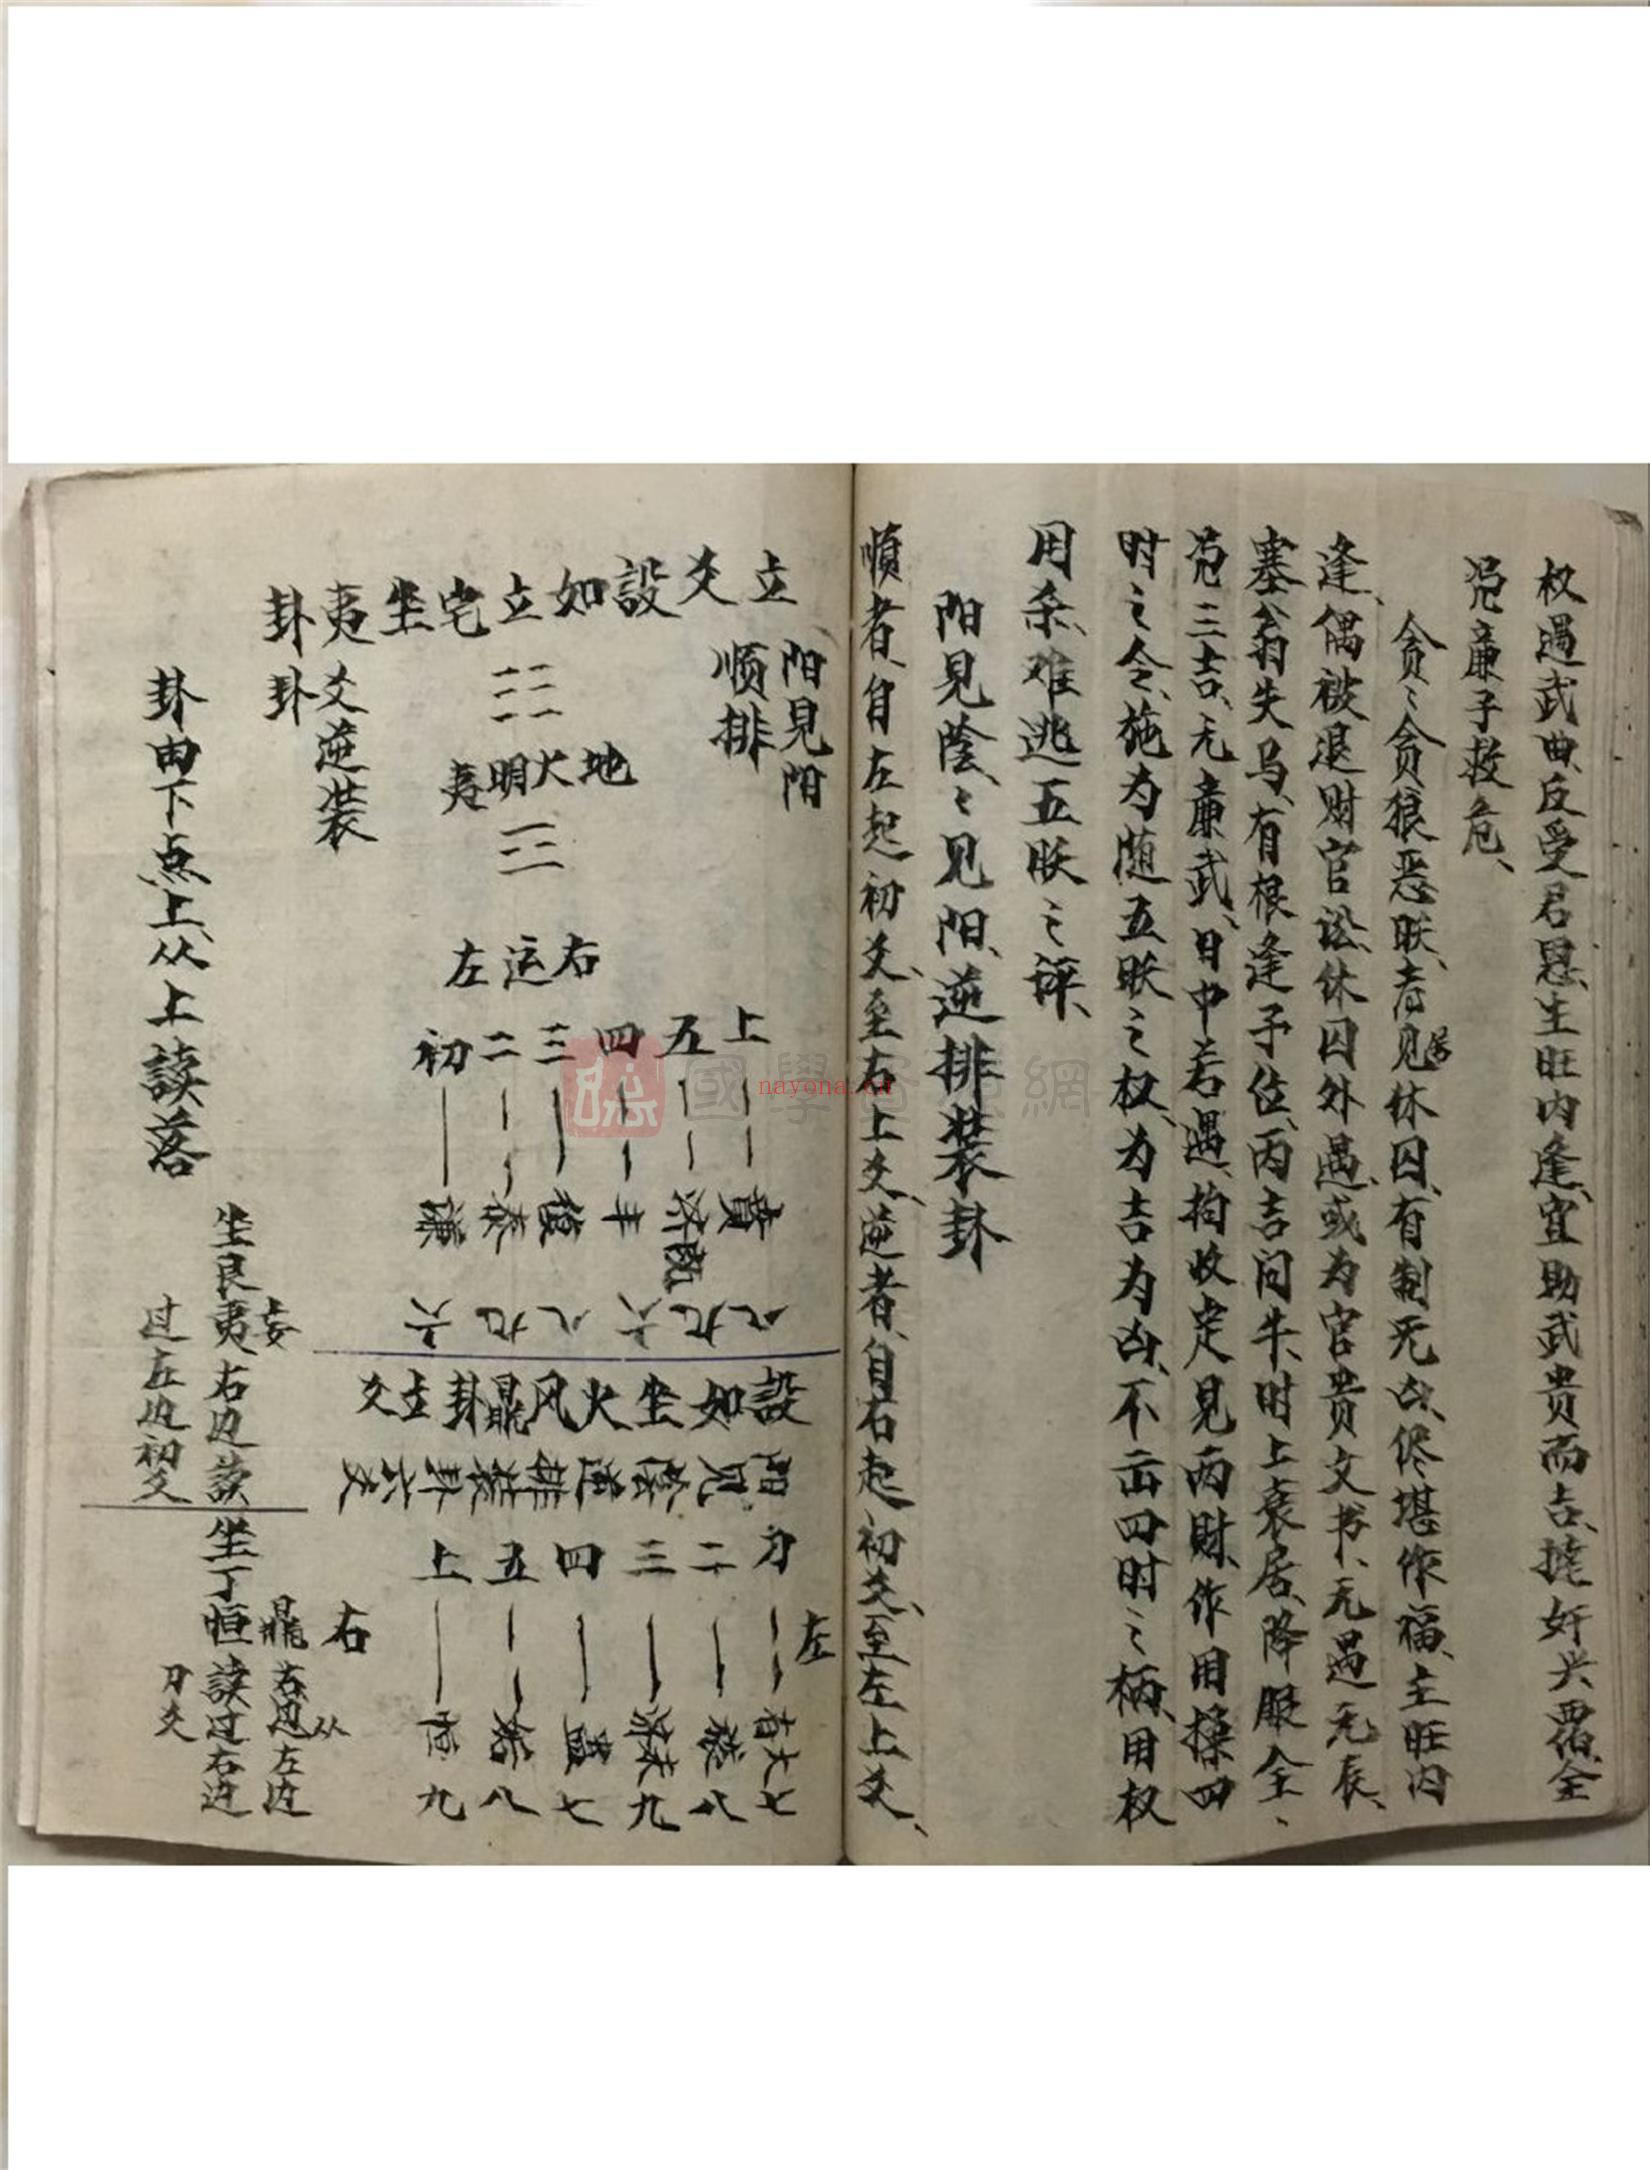 权遇武曲反受君恩、生旺内逢、宜助武贵而吉、奸兴罢、全
見廉子救危、
贪〻贪狼恶朕、者見休囚、有制无凶、侭堪作福、主旺内
逢、偶被退财官讼、休囚外遇、或为官贵文书、无遇无辰、
塞翁失马、有根逢子位、丙吉问牛、时上衰居、降服全、
見三吉、无廉武、日中若遇、拘收定見两財、作用操四
时之令、施为随五朕之权、为吉为凶、不出四时之柄、用权
用杀、难逃五朕之详、
阳見陰、〻見阳、逆排装卦
順者、自左起初爻、至右上爻、逆者、自右起初爻、至左上爻、
阳見阳
顺排
立爻設如立宅坐夷卦
地火明夷
爻逆装
卦
右运左
上五四三二初
賁 既济 丰 復 泰 谦
八九六八九六
設如坐火风鼎卦立爻
阳見陰逆排装卦六爻
左
二三四五上
大有 旅 未济 蛊 姤 恒
七八九七八九
右
卦由下点上、从上读落
坐艮夷右边读
过左边初爻
坐丁恒读过右边
鼎右边从左边
刀爻
國學 網
nayona.cn